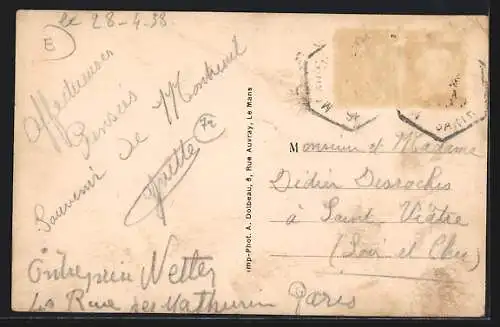 le 28-4-38
E
Affectueuses
Pensées
Souvenir de Montreuil
Ginette
72
Imp-Phot. A. Dolbeau, 8, Rue Auvray, Le Mans
PARIS
Monsieur et Madame
Desroches
à Saint Viâtre
(Loir et Cher)
Entreprise Netter
Rue des Mathurins Paris